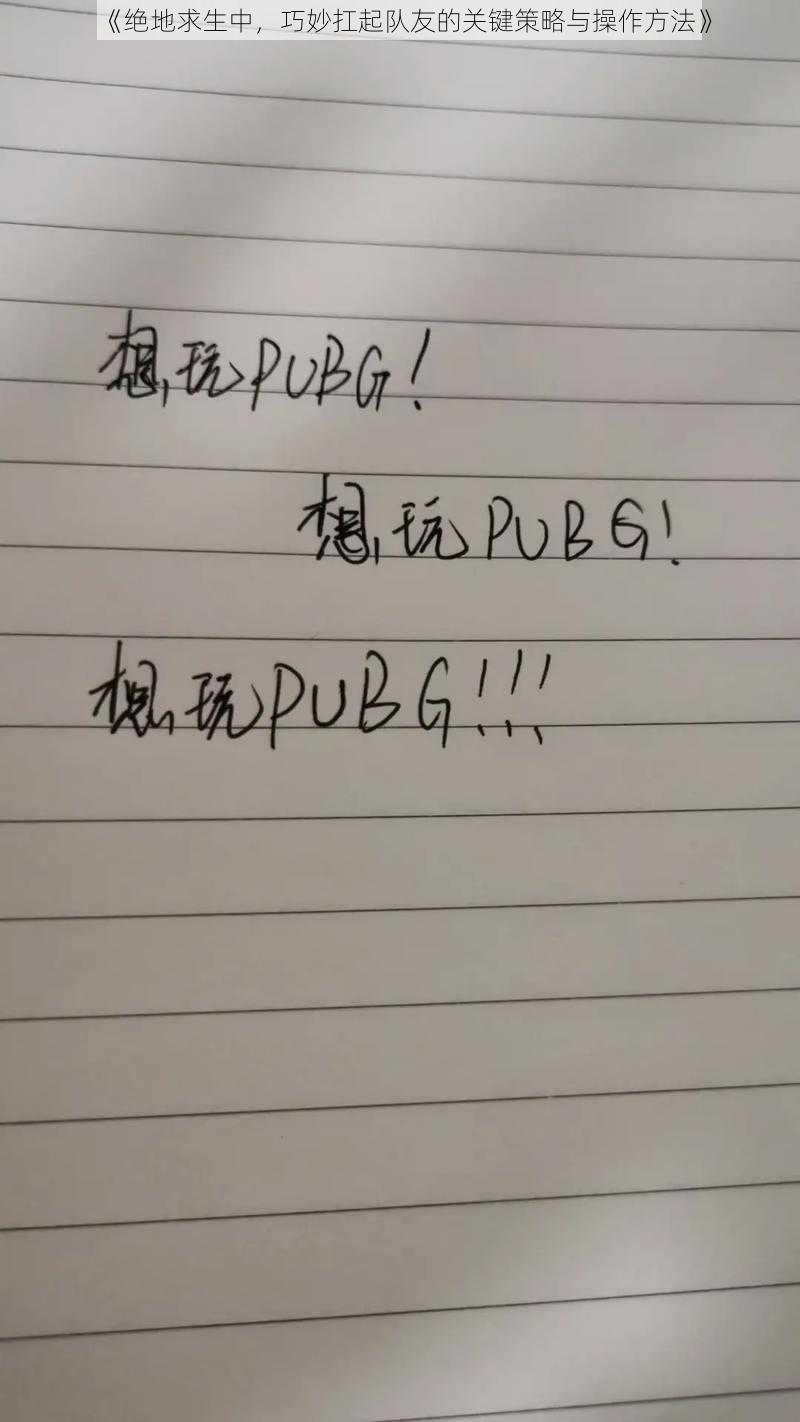 《绝地求生中，巧妙扛起队友的关键策略与操作方法》
想玩PUBG!
想玩PUBG!
想玩PUBG!!!